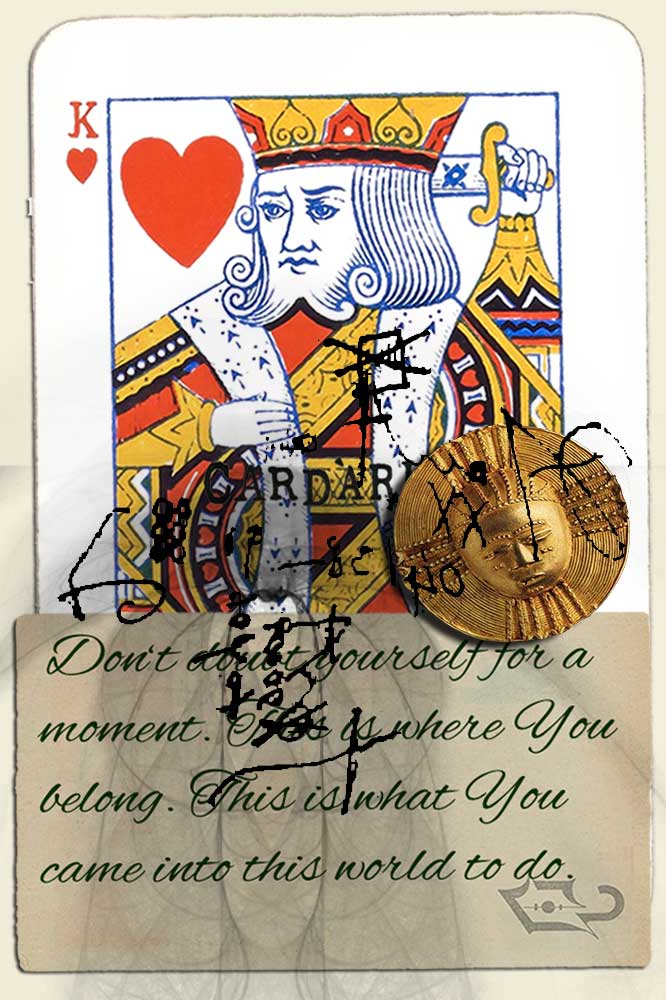 K
CARDAR
NO
Don't doubt yourself for a
moment. This is where You
belong. This is what You
came into this world to do.